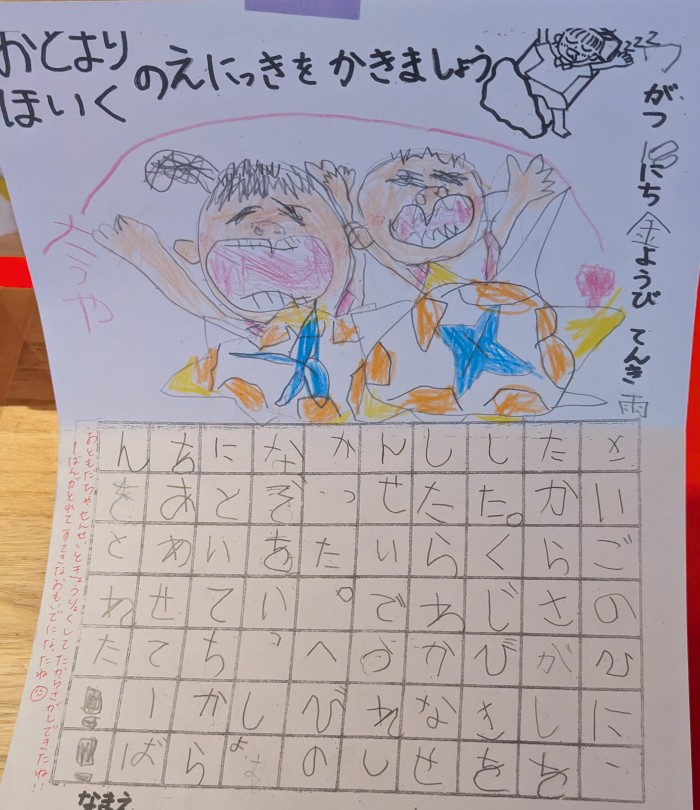 おとまり
ほいく
のえにっきを かきましょう
zzz
がつ
にち
金ようび てんき 雨
さいごのひに、
たからさがしを
した。くじびきを
したらわかなせ
んせいでうれし
かった。へびの
なぞをいっしょ
にといてちから
をあわせてーば
んをとれた
おともだちやせんせいときょうりょくしてたからさがしできたね!!
1ばんがとれてすてきなおもいでになったね☺
なまえ